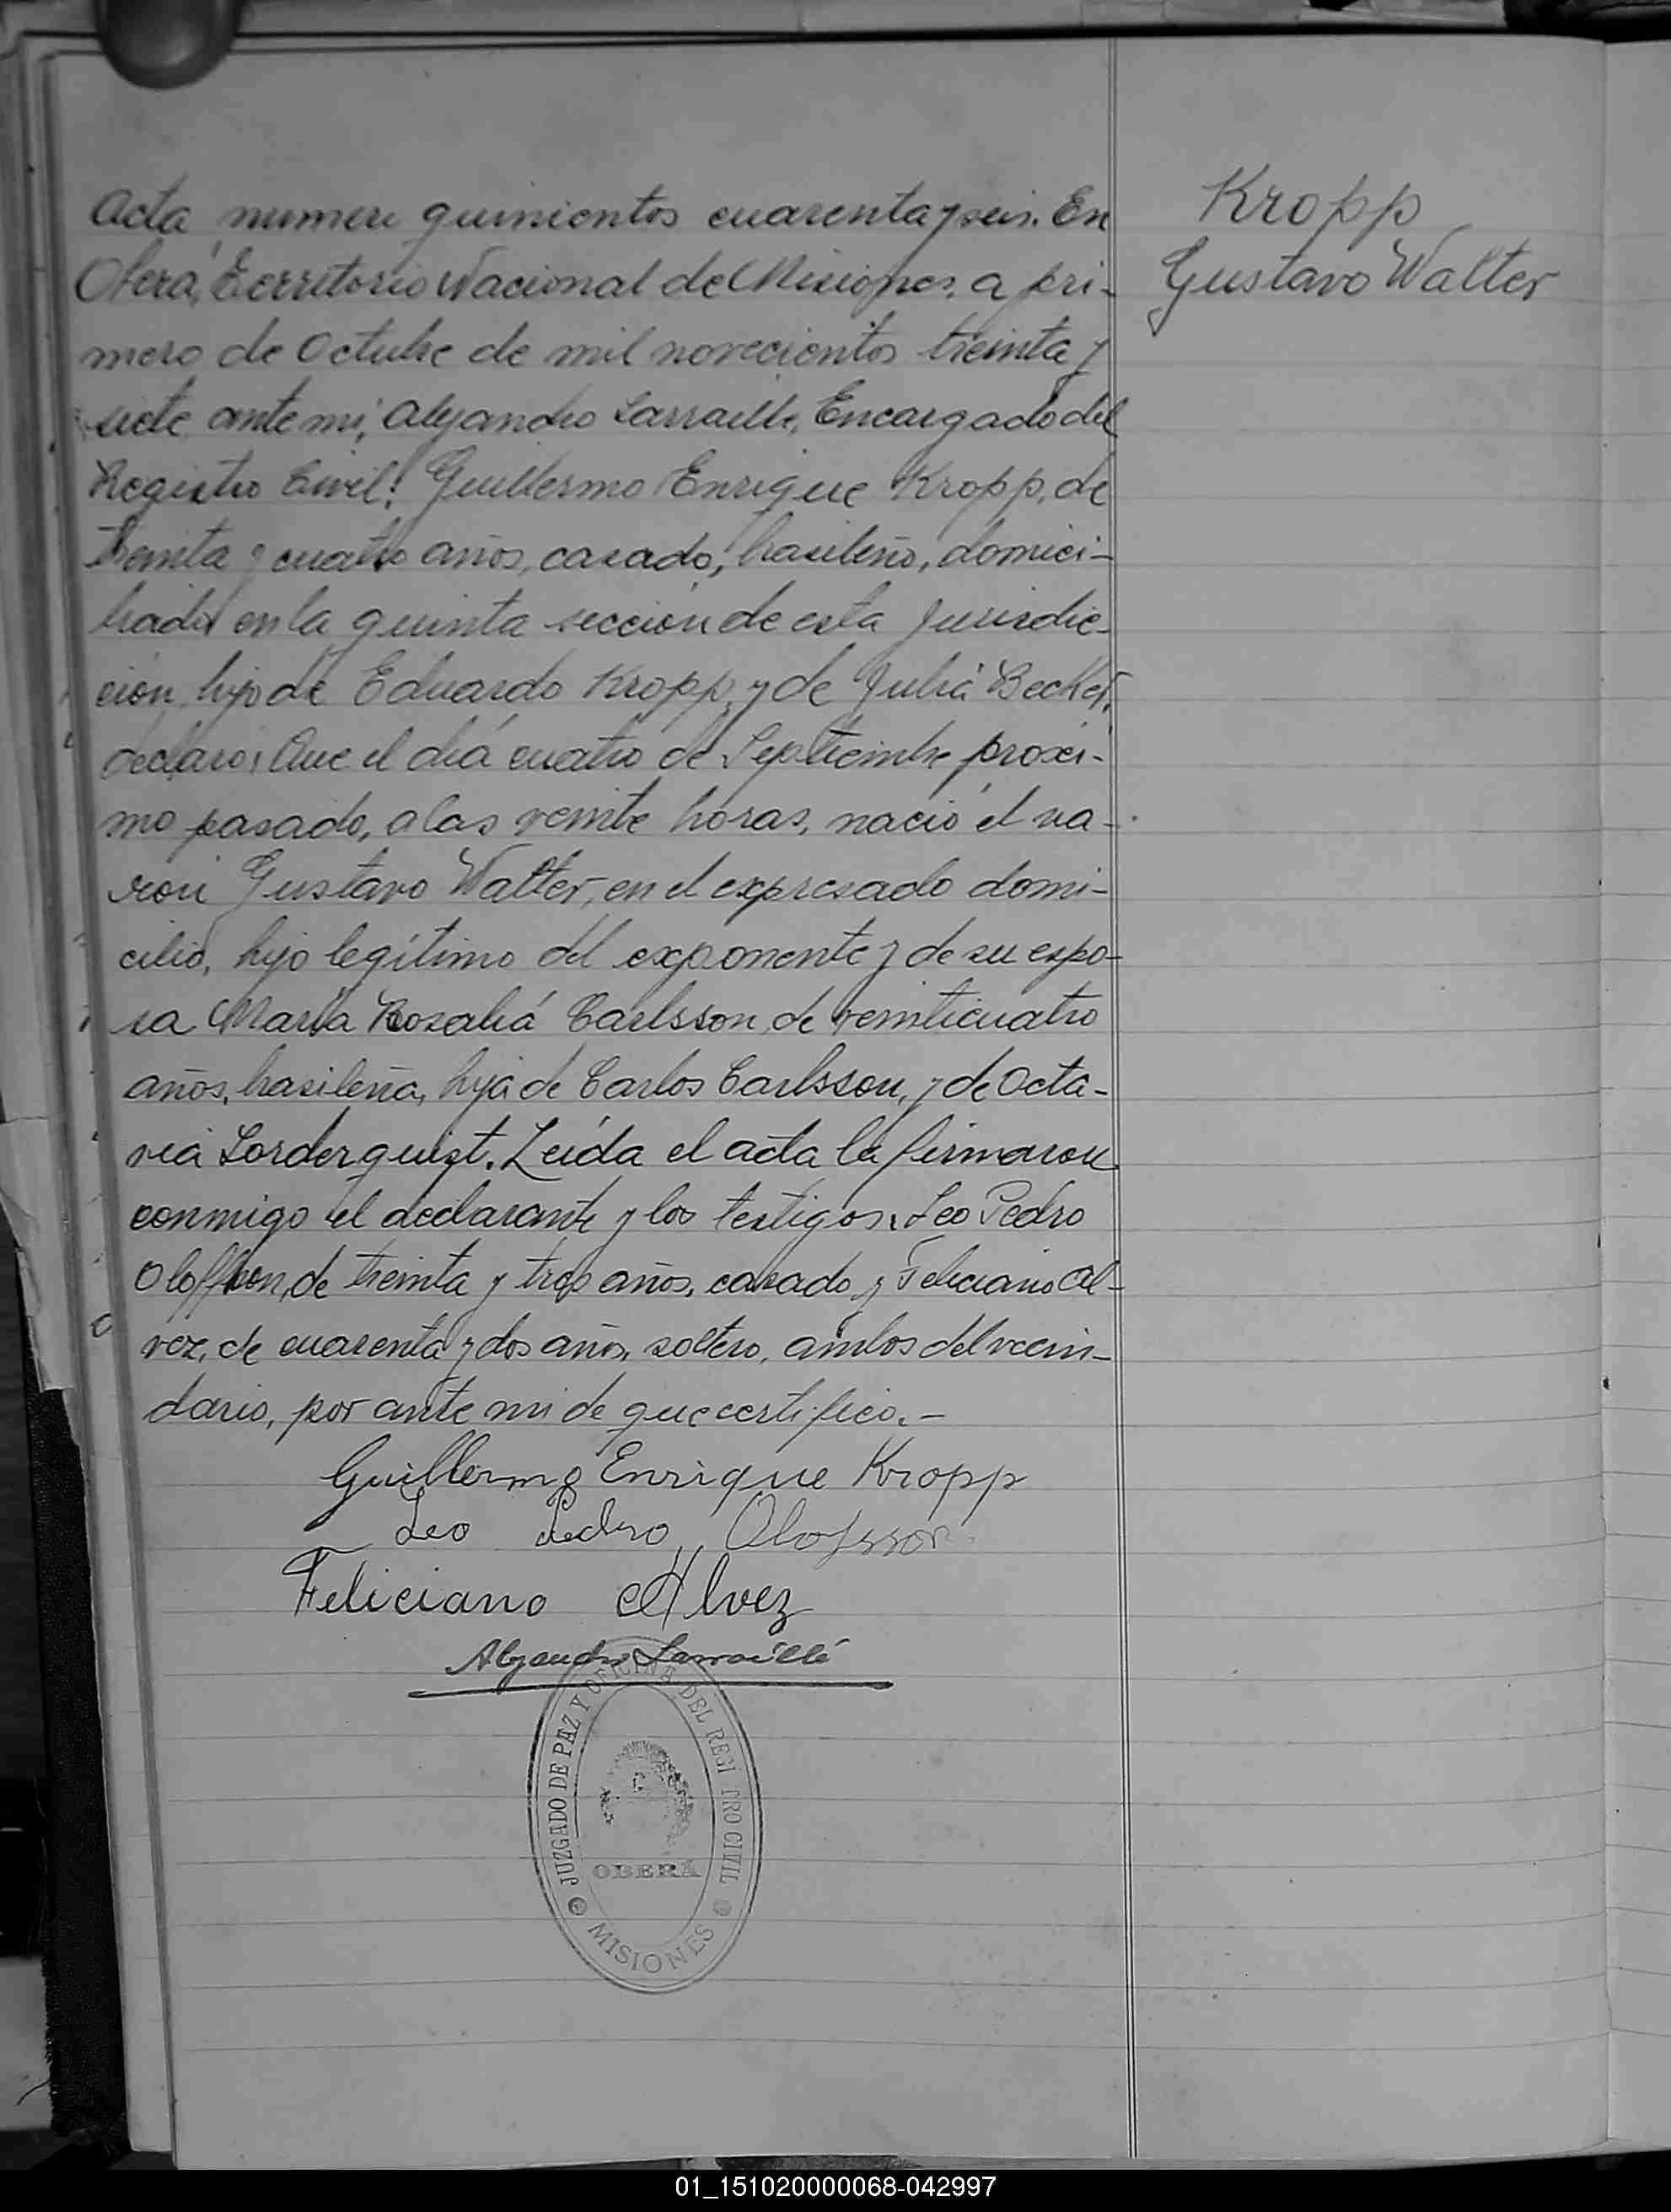 Kropp
Gustavo Walter
Acta numero quinientos cuarenta y seis. En
Oberá, Territorio Nacional de Misiones, a pri-
mero de Octubre de mil novecientos treinta y
siete ante mi, Alejandro Larraillé, Encargado del
Registro Civil: Guillermo Enrique Kropp, de
treinta y cuatro años, casado, brasileño, domici-
liado en la quinta sección de esta jurisdic-
ción, hijo de Eduardo Kropp, y de Julia Becker,
declaró: Que el día cuatro de Septiembre próxi-
mo pasado, a las veinte horas, nació el va-
ron Gustavo Walter, en el expresado domi-
cilio, hijo legítimo del exponente y de su espo-
sa María Rosalía Carlsson, de veinticuatro
años, brasileña, hija de Carlos Carlsson, y de Octa-
via Sorderquist. Leída el acta la firmaron
conmigo el declarante y los testigos, Leo Pedro
de treinta y tres años, casado y Feliciano Al-
vez, de cuarenta y dos años, soltero, ambos del vecin-
dario, por ante mi de que certifico.-
Guillermo Enrique Kropp
Leo Pedro Olofsson
Feliciano Alvez
Alejandro Larraillé
JUZGADO DE PAZ Y OFICINA DEL REGI TRO CIVIL
OBERÁ
MISIONES
01_151020000068-042997